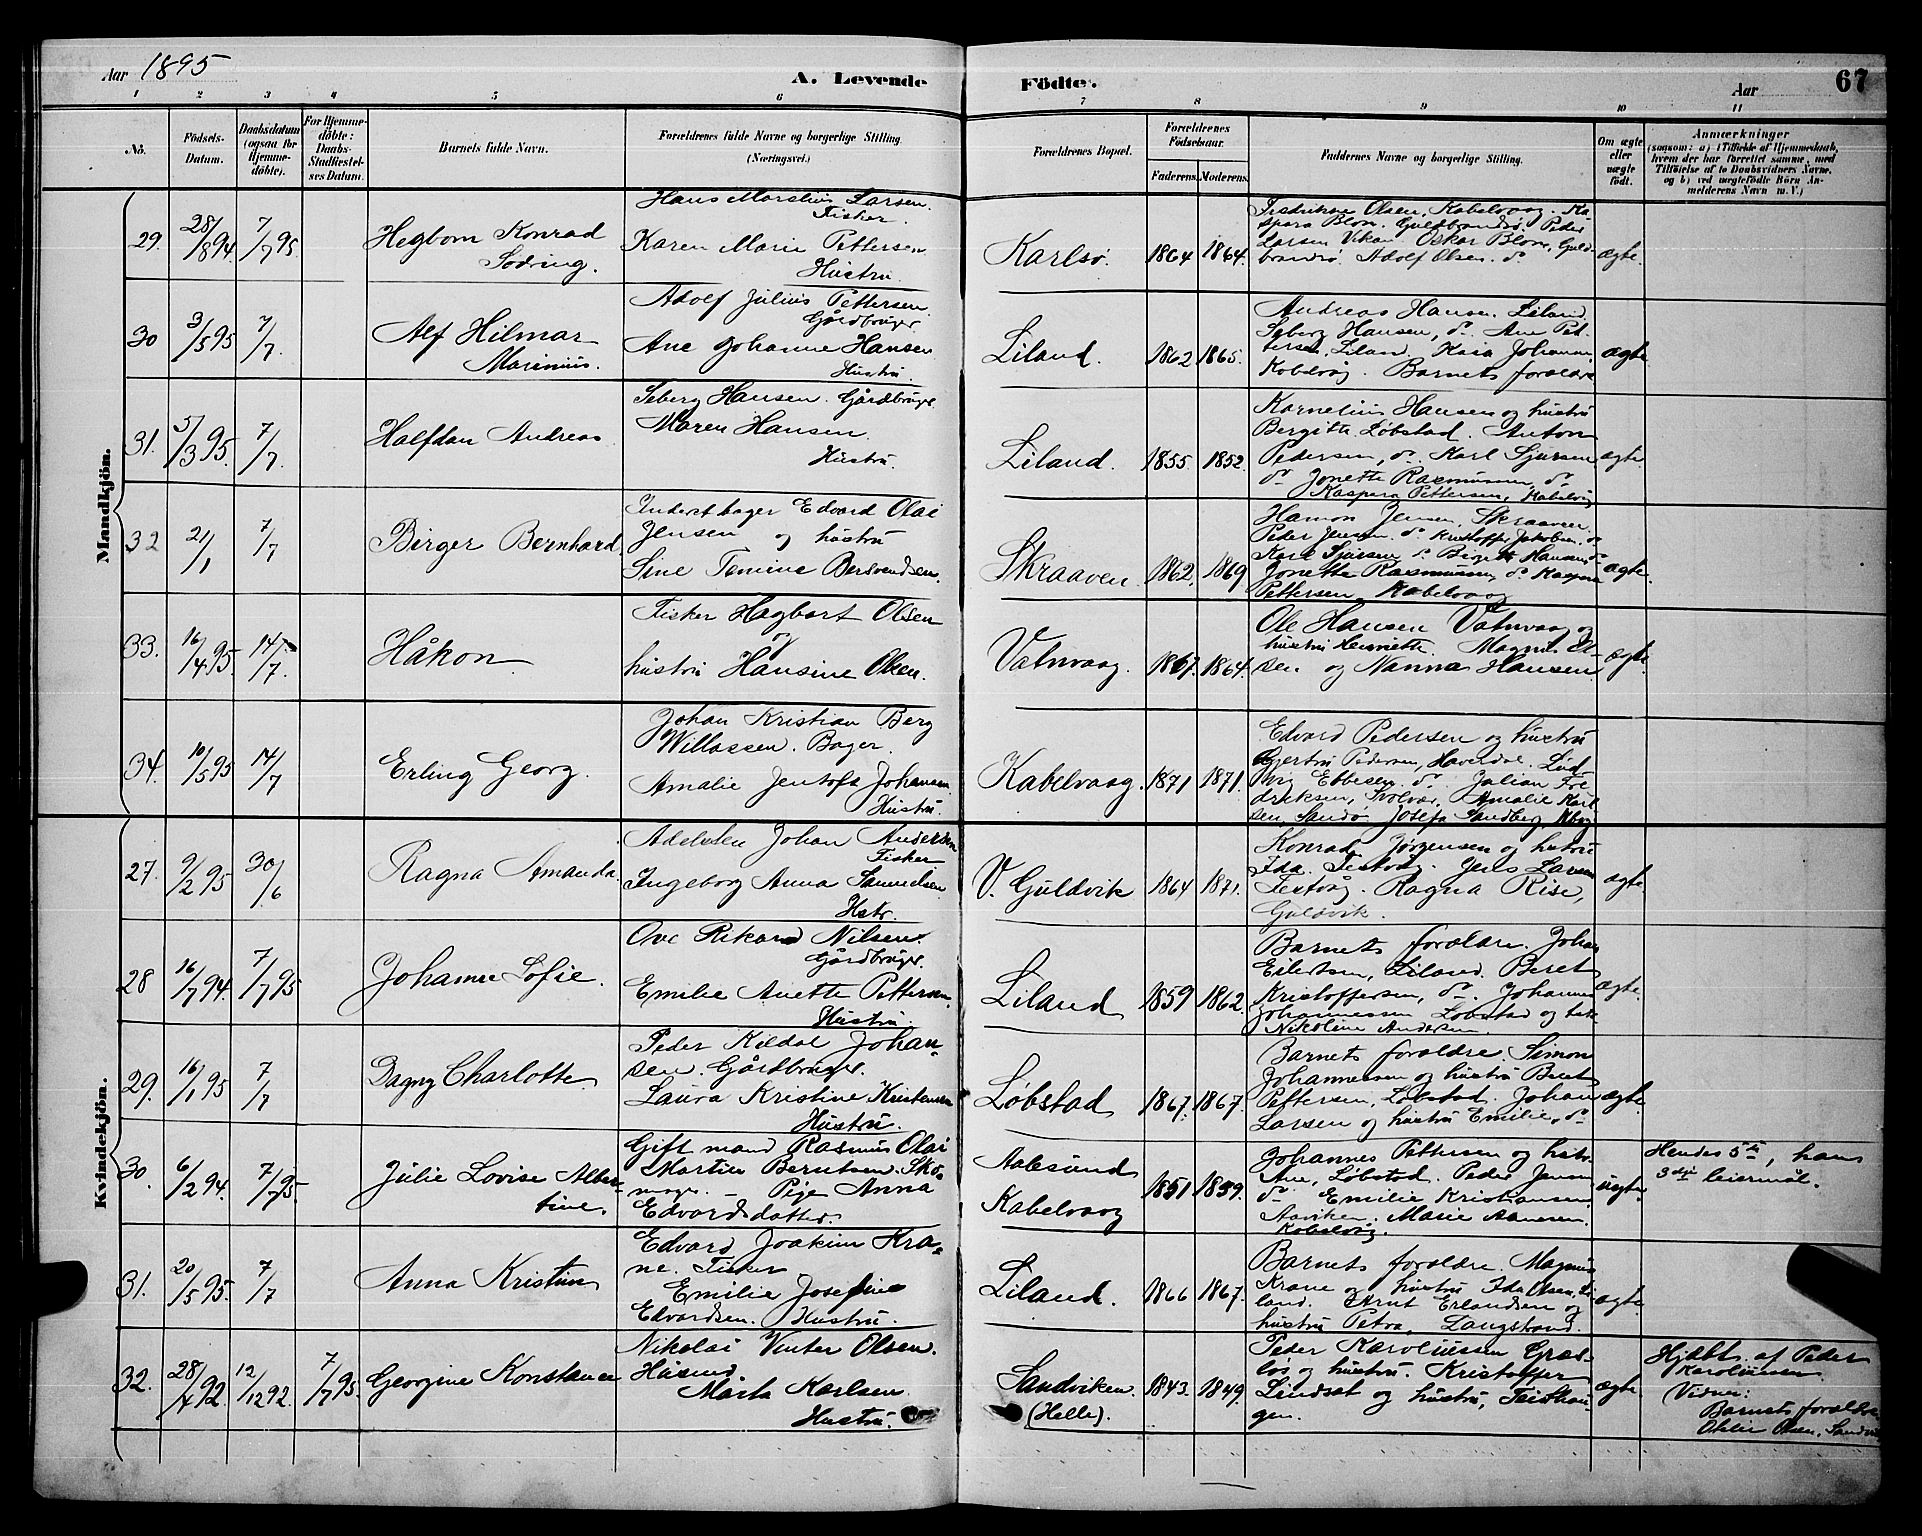 Aar 1895
A. Levende Födte.
Aar
67
1 2 3 4 5 6 7 8 9 10 11
No.
Födsels-Datum.
Daabsdatum (ogsaa for Hjemmedöbte).
For Hjemmedöbte: Daabs-Stadfæstelses Datum.
Barnets fulde Navn.
Forældrenes fulde Navne og borgerlige Stilling. (Næringsvei.)
Forældrenes Bopæl.
Forældrenes Födselsaar.
Faderens. Moderens.
Faddernes Navne og borgerlige Stilling.
Om ægte eller uægte födt.
Anmærkninger
(saasom: a) i Tilfælde af Hjemmedaab, hvem der har forrettet samme, med Tilföielse af to Daabsvidners Navne, og b) ved uægtefödte Börn Anmelderens Navn m. V.)
Mandkjön.
29. 28/8 94 7/7 95. Hegbom Konrad
Sodring.
Hans Marelius Larsen.
Fisker.
Karen Marie Pettersen
Hustru
Karlsø. 1864 1864.
Fredrikson Olsen, Kabelvaag. Ka-
spara Blom, Guldbrandsø. Peder
Larsen Vikan. Oskar Blom, Guld-
brandsø. Adolf Olsen. do
ægte.
30 3/5 95 7/7. Alf Hilmar
Marinius.
Adolf Julius Pettersen.
Gårdbruger.
Ane Johanne Hansen
Hustru
Liland. 1862 1865.
Andreas Hansen. Liland.
Seberg Hansen, do. Ane Pet-
tersen, Liland. Kaia Johanne
Kabelvåg. Barnets forældre
ægte
31. 5/3 95. 7/7. Halfdan Andreas
Seberg Hansen. Gårdbruger.
Maren Hansen.
Hustru
Liland. 1855 1852.
Kornelius Hansen og hustru
Bergitte Løbstad. Anton
Pedersen, do. Karl Sjursen
do Jonette Rasmussen, do.
Kaspara Pettersen, Kabelvåg
ægte
32 21/1 7/7 Birger Bernhard
Inderstbager Edvard Olai
Jensen og hustru
Sine Tomine Bersvendsen.
Skraaven 1862. 1869
Hamon Jensen. Skraaven.
Peder Jensen do Kristoffer Jakobsen do
Karl Sjursen do Birgit Hansen do
Jonette Rasmussen do Kaspara
Pettersen Kabelvaag
ægte.
33. 16/4 95. 14/7. Håkon
Fisker Hagbart Olsen
og
hustru Hansine Olsen.
Vatnvaag. 1867. 1864.
Ole Hansen Vatnvaag og
hustru Henriette. Magnus Ol-
sen og Nanna Hansen
ægte.
34. 10/5 95 14/7 Erling Georg.
Johan Kristian Berg
Willassen. Bager.
Amalie Jentoft Johansen
Hustru.
Kabelvaag. 1871 1871.
Edvard Pedersen og hustru
Gjertru Pedersen, Haverdal. Lud-
vig Ebbesen do. Julian Fre-
driksen, Svolvær. Amalie Karl-
sen, Sandø. Josefa Sandberg
Kvindekjön.
27. 9/2 95 30/6 Ragna Amanda.
Adelsten Johan Andersen
Fisker
Ingeborg Anna Samuelsen
Hstr.
V. Guldvik 1864 1871.
Konrad Jørgensen og hustru
Ida. Festvåg. Jens Larsen
Festvåg. Ragna Rise,
Guldvik.
ægte
28 16/7 94. 7/7 95 Johanne Sofie.
Ove Rikard Nilsen.
Gårdbruger.
Emilie Anette Pettersen.
Hustru.
Liland 1859 1862.
Barnets forældre. Johan
Eilertsen, Liland. Beret
Kristoffersen, do. Johannes
Johannessen Løbstad og
Nikoline Andersen.
ægte.
29. 16/1 95 7/7 Dagny Charlotte
Peder Kildal Johan-
sen. Gårdbruger.
Laura Kristine Kristensen
Hustru.
Løbstad 1867. 1867.
Barnets forældre. Simon
Johannessen og hustru Beret
Pettersen, Løbstad. Johan
Larsen og hustru Emilie, do
ægte.
30. 6/2 94. 7/7 95. Julie Lovise Alber-
tine.
Gift mand Rasmus Olai
Martin Berntsen. Sko-
mager. – Pige Anna
Edvardsdatter.
Aalesund
Kabelvaag
1851 1859.
Johannes Pettersen og hstr.
Ane, Løbstad. Peder Jensen
do. Emilie Kristiansen
Aaviken. Marie Aanesen.
Kabelvåg.
uægte
Hendes 5te, hans
3die leiermål.
31. 20/5 95. 7/7 Anna Kristine
Edvard Joakim Kra-
ne. Fisker
Emilie Josefine
Edvardsen. Hustru.
Liland. 1866 1867.
Barnets forældre. Magnus
Krane og hustru Ida Olsen, Li-
land. Arnt Erlandsen og
hustru Petra, Langstrand.
ægte.
32. 28/4 92. 12/12 92. 7/7 95. Georgine Konstanse
Nikolai Vinter Olsen.
Husmd.
Marta Karlsen.
Hustru.
Sandviken.
(Helle).
1843. 1849.
Peder Karoliussen Græs-
løs og hustru. Kristoffer
Lindset og hustru, Teisthau-
gen.
ægte.
Hjdøbt. af Peder
Karoliussen.
Vidner:
Barnets forældre
Olsen, Sandv